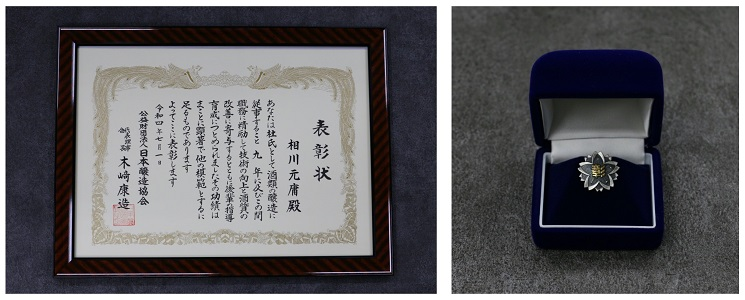 表彰状
相川元庸殿
あなたは杜氏として酒類の醸造に
従事すること 九 年に及びこの間
職務に精励して技術の向上と酒質の
改善に寄与するとともに後輩の指導
育成につとめられましたその功績は
まことに顕著で他の模範とするに
足るものであります
よってここに表彰します
令和四年七月一日
公益財団法人日本醸造協会
会長 木崎康造
彰